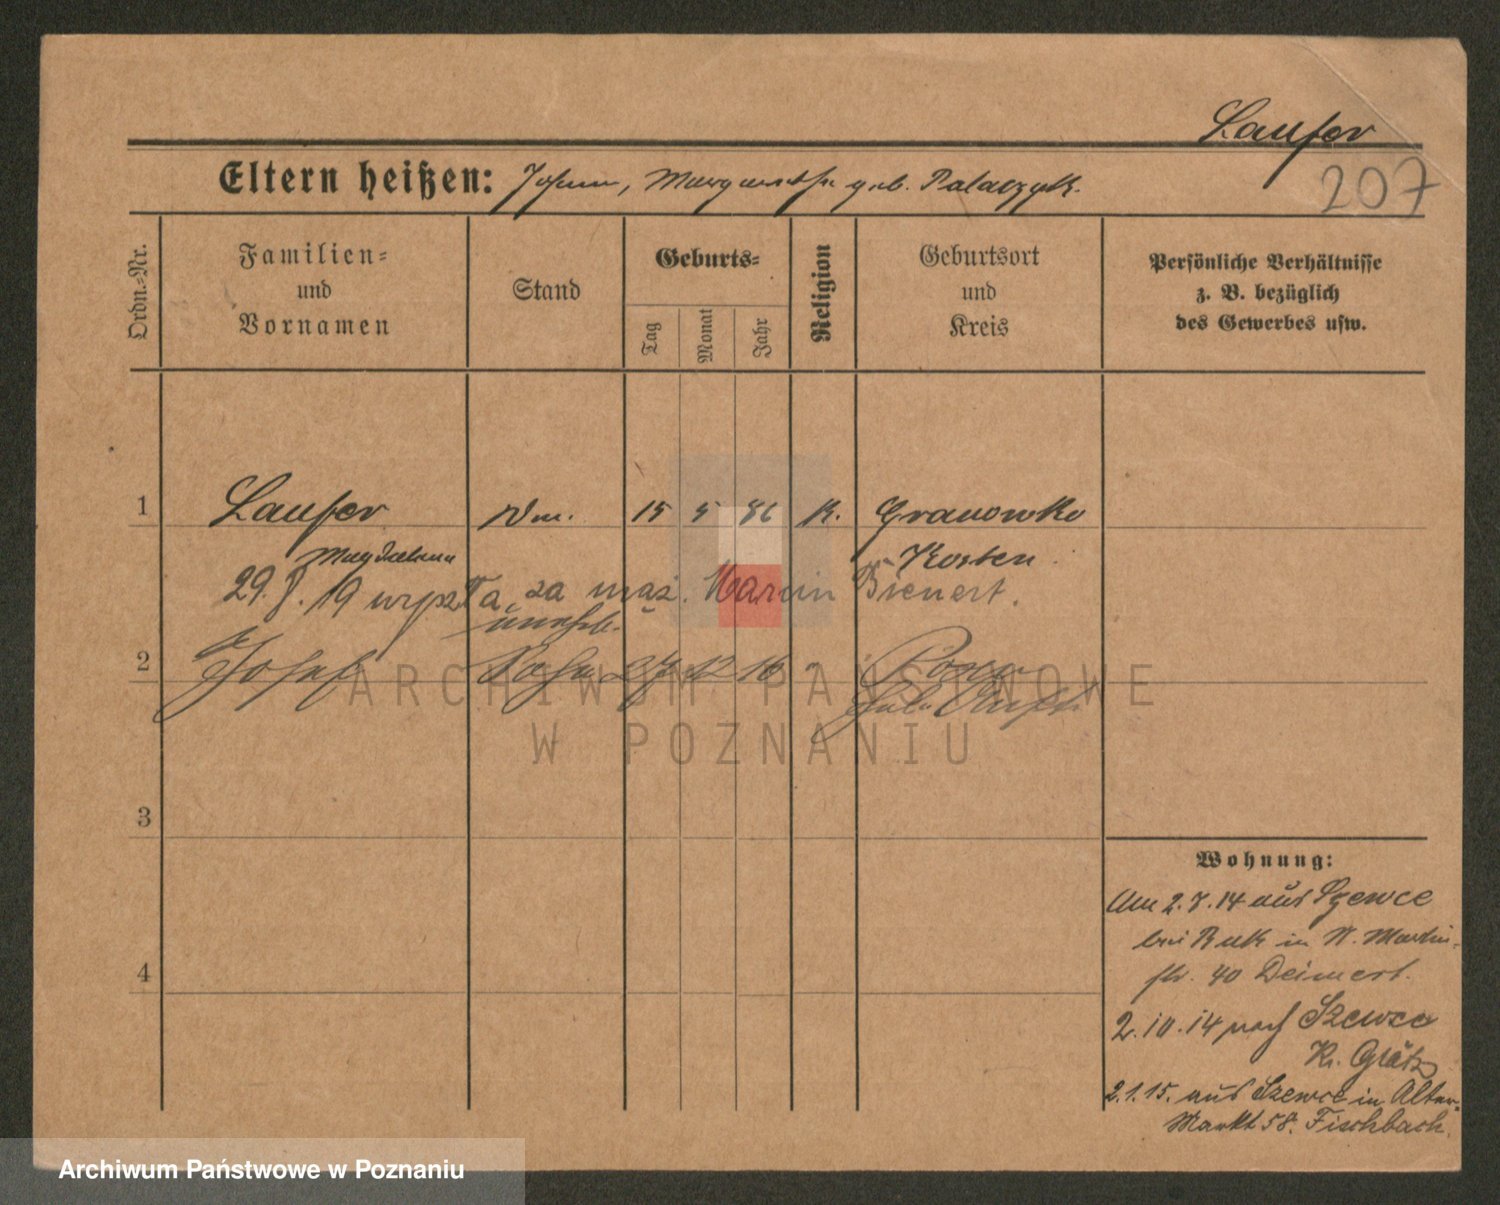 Laufer
Eltern heißen: Johann, Margarethe geb. Palaczyk.
207
Ordn.-Nr.
Familien-
und
Vornamen
Stand
Geburts-
Tag
Monat
Jahr
Religion
Geburtsort
und
Kreis
Persönliche Verhältnisse
z. B. bezüglich
des Gewerbes usw.
1 Laufer 15 5 86 K. Granowko
Magdalena Kosten
29. 8. 19 wyszła za mąż. Marcin Bienert.
unehl.
2 Josef Sohn 27 12 16 Posen
3
4
Wohnung:
Am 2.7.14 aus Szewce
bei Buk in St. Martin-
str. 40 Deimert.
2.10.14 nach Szewce
Kr. Grätz
2.1.15. aus Szewce in Alter-
Markt 58. Fischbach.
ARCHIWUM PAŃSTWOWE
W POZNANIU
Archiwum Państwowe w Poznaniu